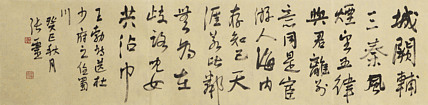 城闕輔
三秦風
煙望五津
與君離別
意同是宦
游人海内
存知己天
涯若比鄰
無為在
歧路兒女
共沾巾
王勃詩送杜
少府之任蜀
川
癸巳秋月
張